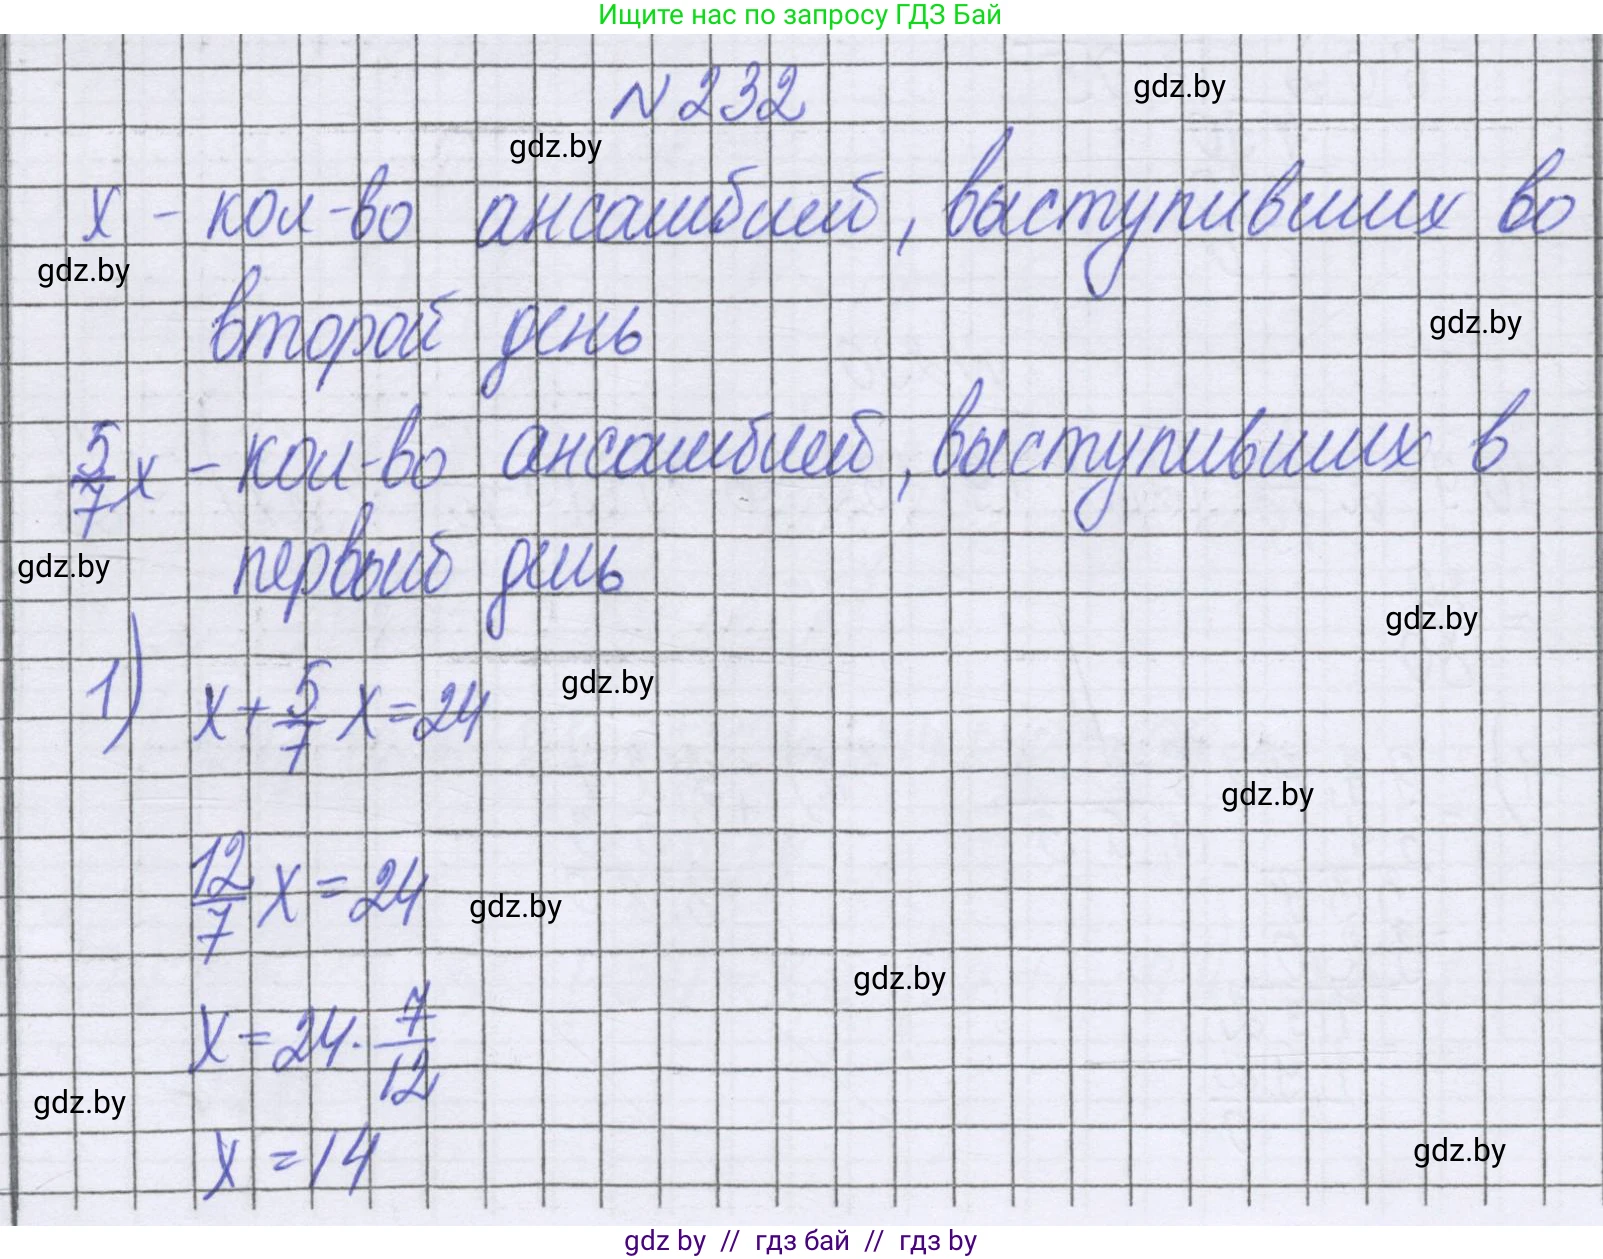 Ищите нас по запросу ГДЗ Бай
N 232
gdz.by
gdz.by
x - кол-во ансамблей, выступивших во
gdz.by
второй день
gdz.by
5/7 x - кол-во ансамблей, выступивших в
первый день
gdz.by
gdz.by
1) x + 5/7 x = 24
gdz.by
gdz.by
12/7 x = 24
gdz.by
gdz.by
x = 24 · 7/12
gdz.by
x = 14
gdz.by
gdz by // гдз бай // гдз by